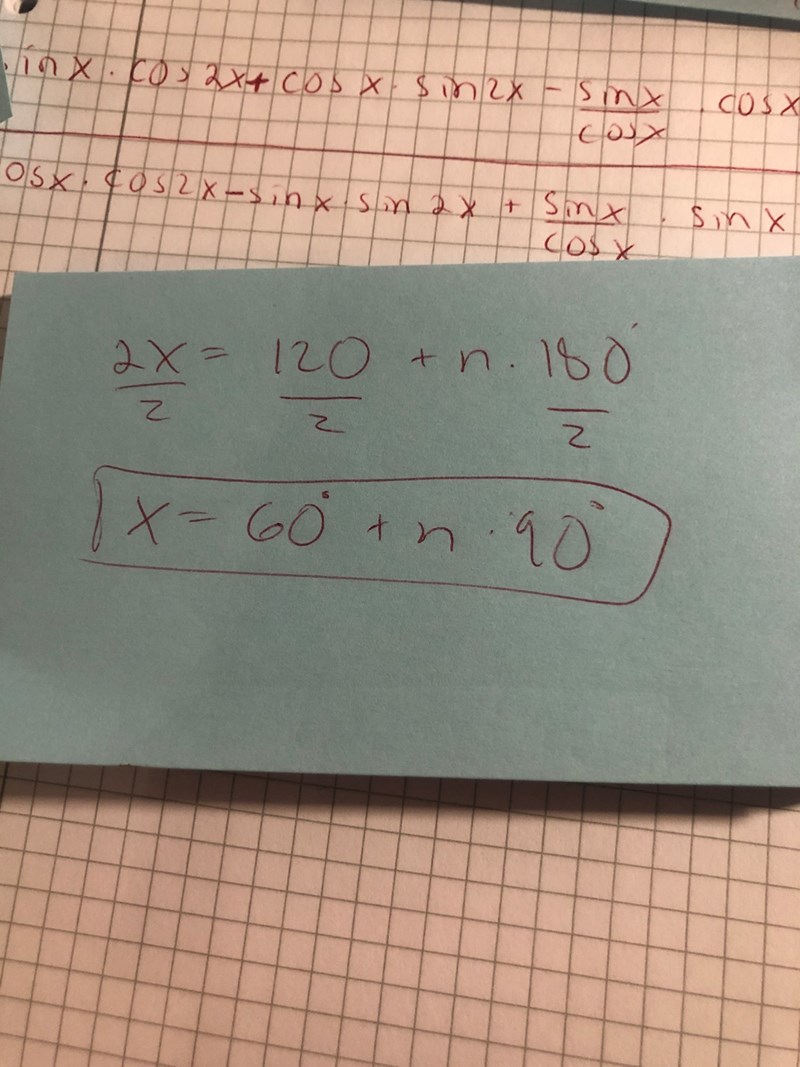 inx · cos 2x + cos x · sin 2x - sinx/cosx · cosx
osx · cos2x - sin x · sin 2x + sinx/cosx · sin x
2x/2 = 120/2 + n · 180°/2
x = 60° + n · 90°